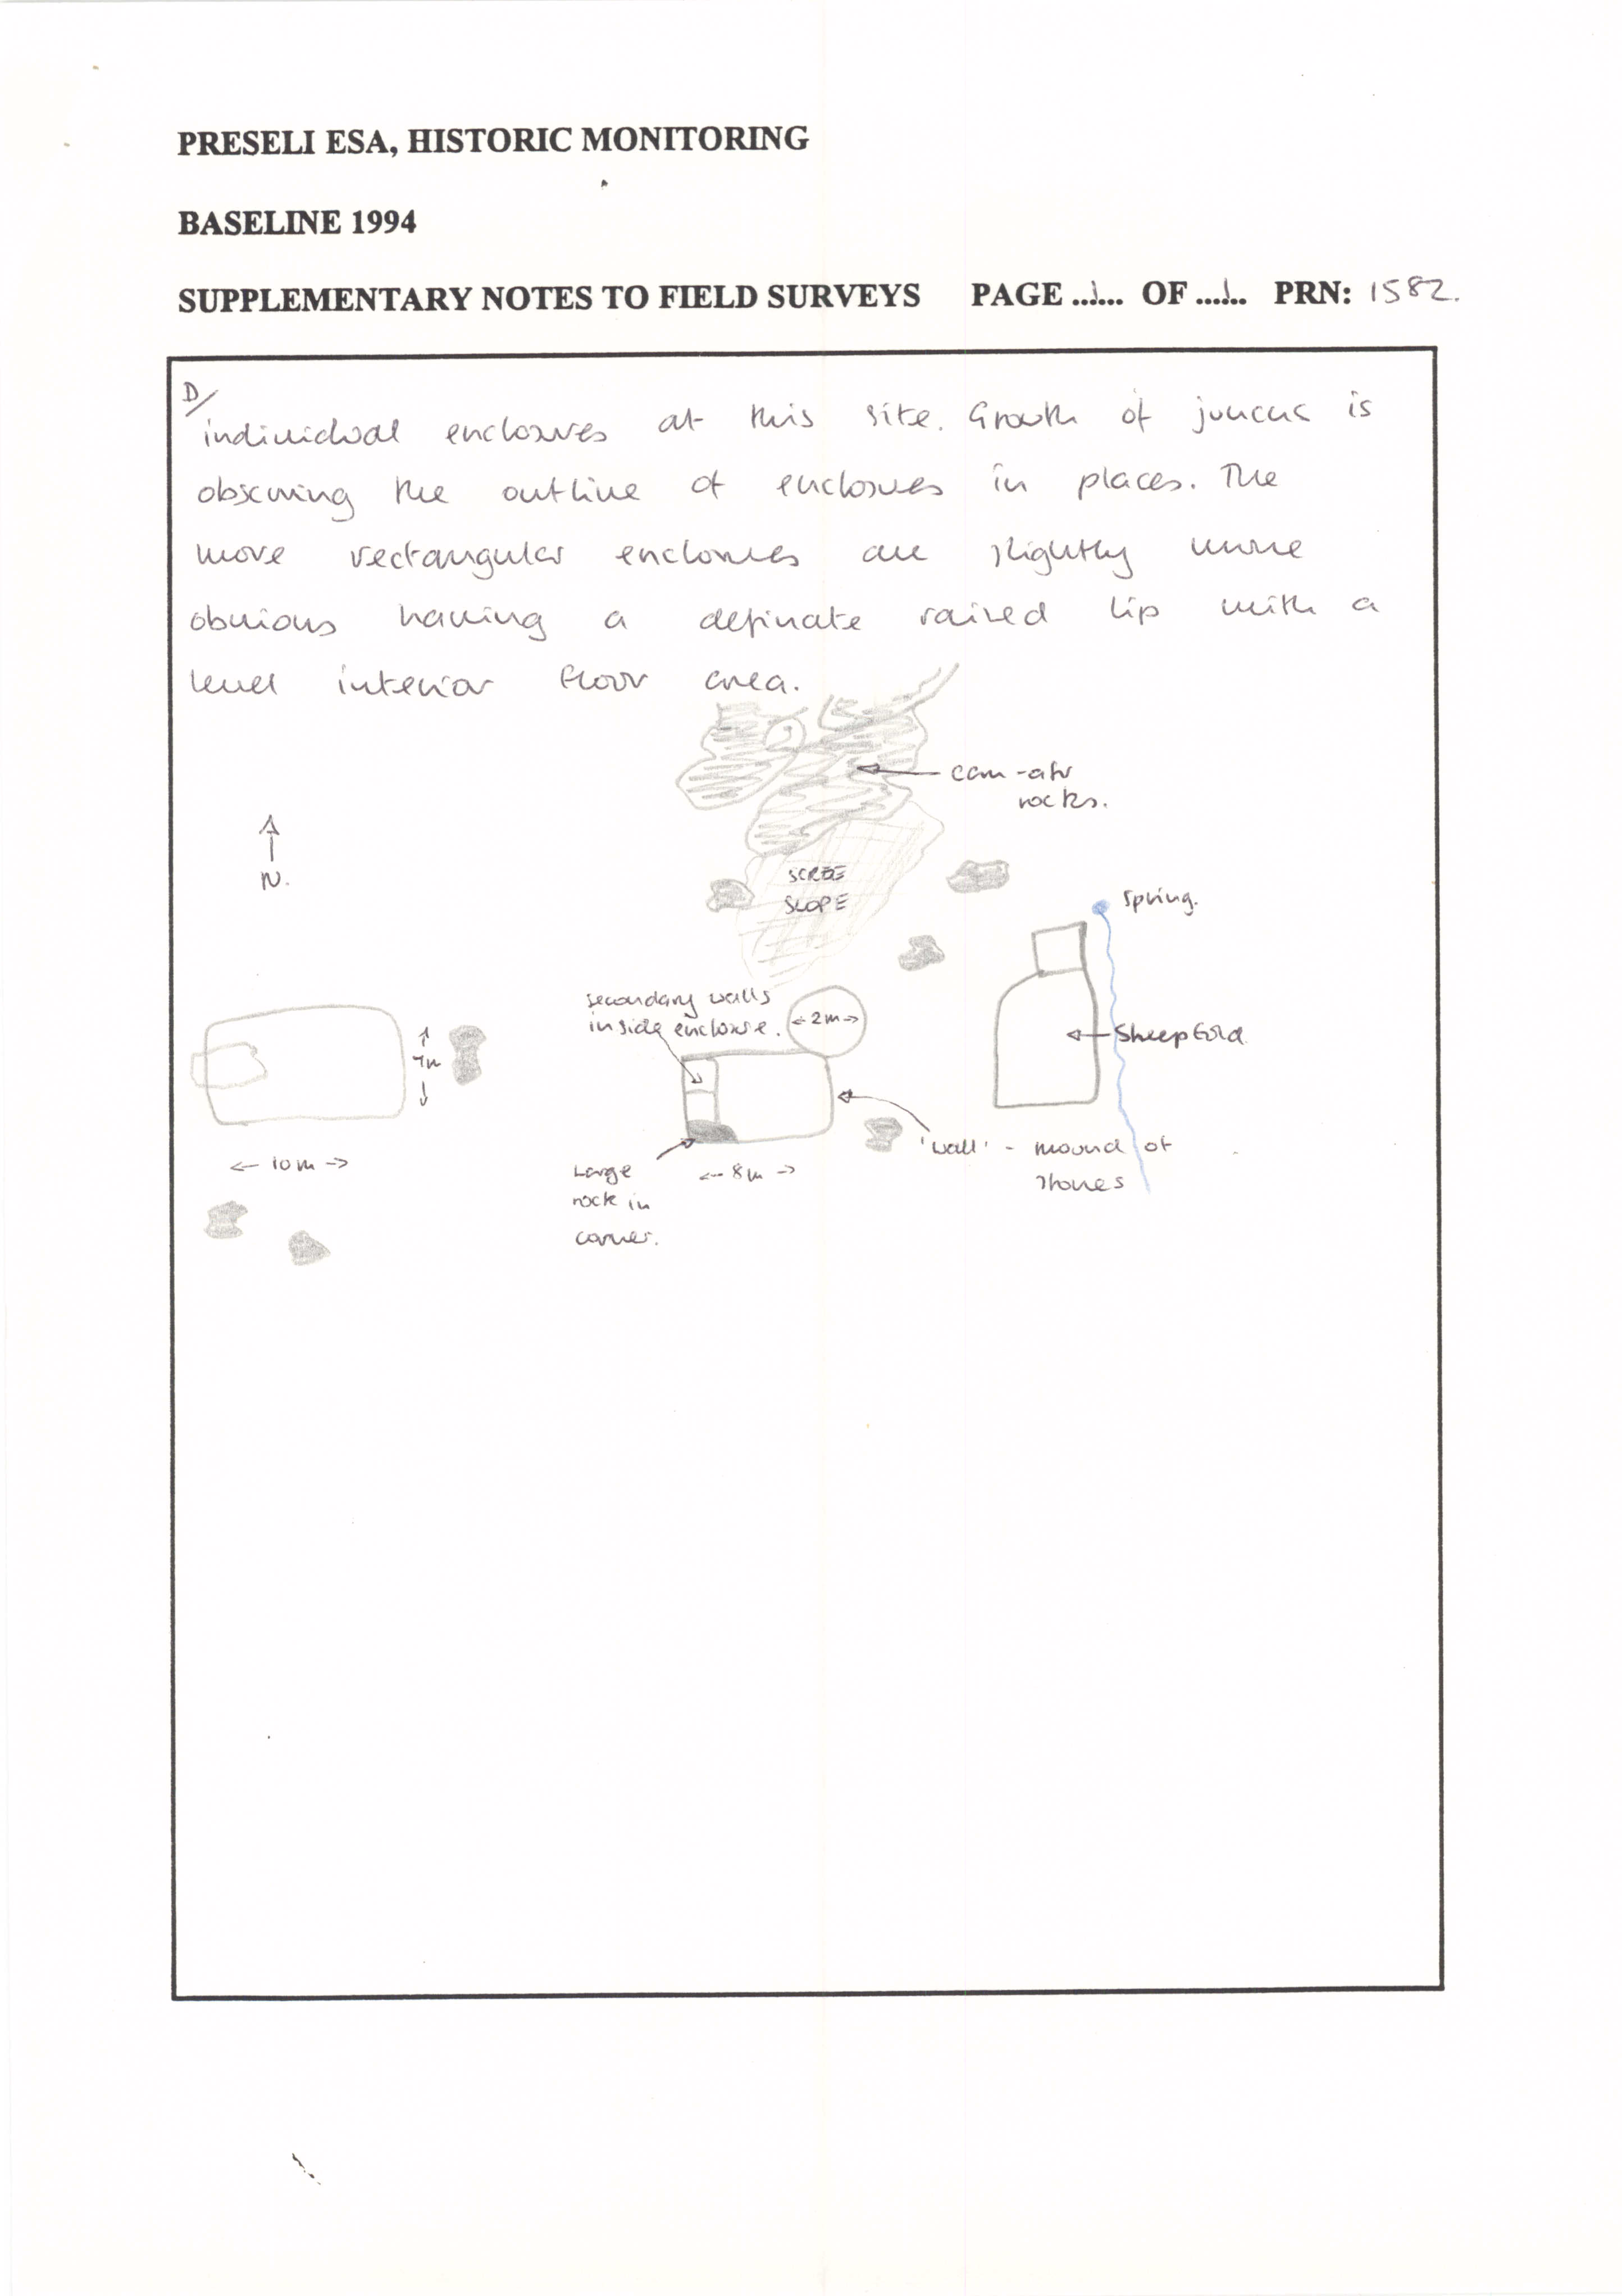 PRESELI ESA, HISTORIC MONITORING
BASELINE 1994
SUPPLEMENTARY NOTES TO FIELD SURVEYS PAGE ..1... OF ...1.. PRN: 1582.
D/
individual enclosures at this site. Growth of juncus is
obscuring the outline of enclosures in places. The
more rectangular enclosures are slightly more
obvious having a definate raised lip with a
level interior floor area.
rocks.
N.
SCREE
SLOPE
Spring.
secondary walls
inside enclosure.
<-2m->
Sheepfold
7m
<- 10m ->
'wall' - mound of
stones
Large
rock in
corner.
<- 8m ->